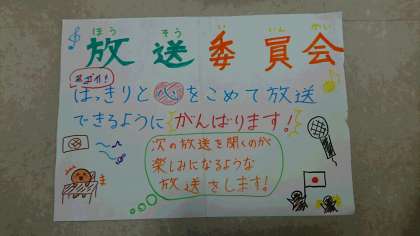 ほう そう い いん かい
放送委員会
めあて!
はっきりと心をこめて放送
できるように がんばります!
次の放送を聞くのが
楽しみになるような
放送をします!